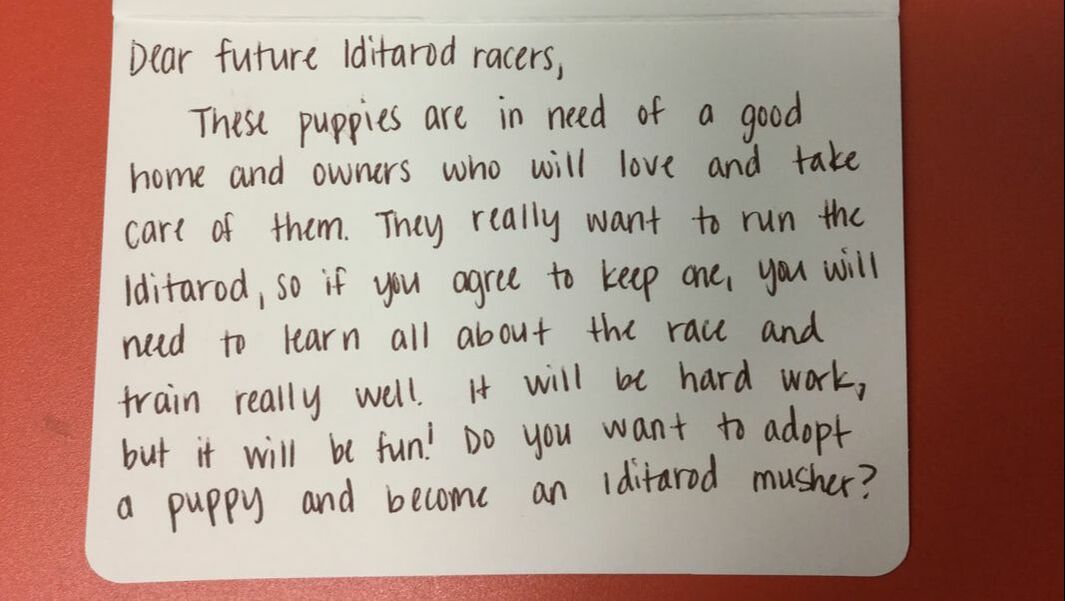 Dear future Iditarod racers,
These puppies are in need of a good
home and owners who will love and take
care of them. They really want to run the
Iditarod, so if you agree to keep one, you will
need to learn all about the race and
train really well. It will be hard work,
but it will be fun! Do you want to adopt
a puppy and become an Iditarod musher?